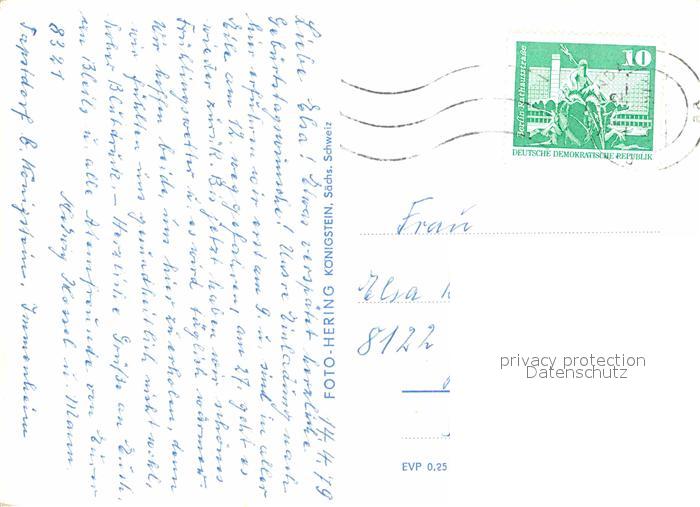 14.4.79
Liebe Elsa! Etwas verspätet herzliche
Geburtstagswünsche! Unsre Einladung nach
hier erfuhren wir erst am 9. u. sind in aller
Eile am 12. weggefahren, am 27. geht es
wieder zurück. Bis jetzt haben wir schönes
Frühlingswetter u. es wird täglich wärmer.
Wir hoffen beide, uns hier zu erholen, denn
wir fühlten uns gesundheitlich nicht wohl,
hoher Blutdruck. – Herzliche Grüße an Euch,
an Bleils u. alle Heimfreunde von Eurer
Hedwig u. Mann.
8321
Papstdorf b. Königstein,
FOTO-HERING KÖNIGSTEIN, Sächs. Schweiz
10
Berlin, Rathausstraße
DEUTSCHE DEMOKRATISCHE REPUBLIK
Frau
Elsa
8122
EVP 0,25
privacy protection
Datenschutz